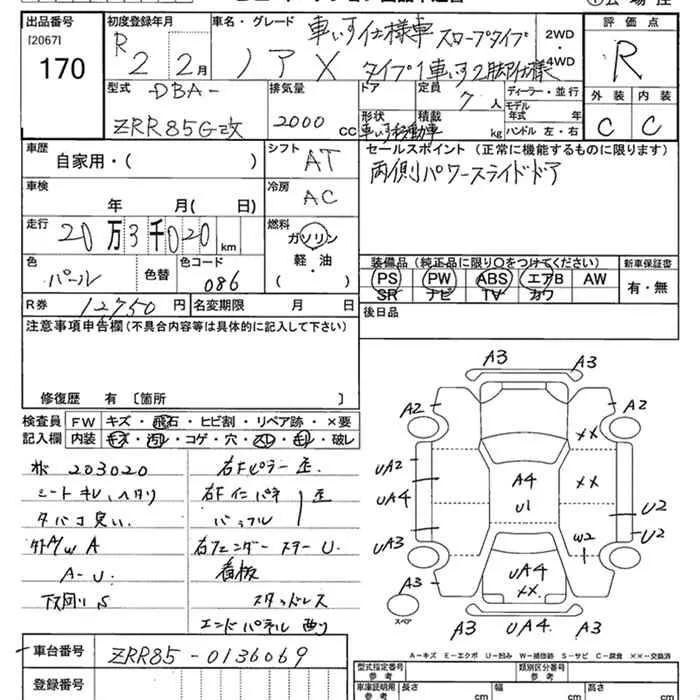 出品番号 初度登録年月 車名・グレード 車いす仕様車 スロープタイプ 2WD・4WD 評価点
[2067]
170
R 2 2月 ノア X タイプ1車いす2脚仕様 R
型式 排気量 ドア 定員 ディーラー・並行 外装 内装
-DBA- 7人 モデル年式 年
ZRR85G改 2000cc 形状 車いす移動車 積載 kg ハンドル 左・右 C C
車歴 シフト セールスポイント(正常に機能するものに限ります)
自家用・( ) AT 両側パワースライドドア
車検 冷房
年 月( 日) AC
走行 燃料
20万3千020km ガソリン
軽・油
( )
色 色替 色コード 装備品(純正品に限り○をつけてください) 新車保証書
パール 086 PS PW ABS エアB AW 有・無
SR ナビ TV カワ
R券 12750円 名変期限 月 日 後日品
注意事項申告欄(不具合内容等は具体的に記入して下さい)
修復歴 有〔箇所
検査員記入欄 FW キズ・飛石・ヒビ割・リペア跡・×要
内装 キズ・汚レ・コゲ・穴・スレ・モレ・破レ
203020 右Fピラー歪.
シートキレ,ヘタリ 右Fインパネ 歪
タバコ臭い. バッフル
外A/W A 右フェンダーステーU.
A-U. 看板
下回りS スタッドレス
エンドパネル
A3 A3
A2 A2
××
UA2 A4 ××
UA4 U1 U2
UA3 W2 U2
A3 UA4
××
スペア A3 UA4 A3
A-キズ E-エクボ U-凹み W-補修跡 S-サビ C-腐食 ××-交換済
車台番号 ZRR85-0136069
登録番号
型式指定番号 参考 類別区分番号 参考
車庫証明用 参考 長さ cm 幅 cm 高さ cm